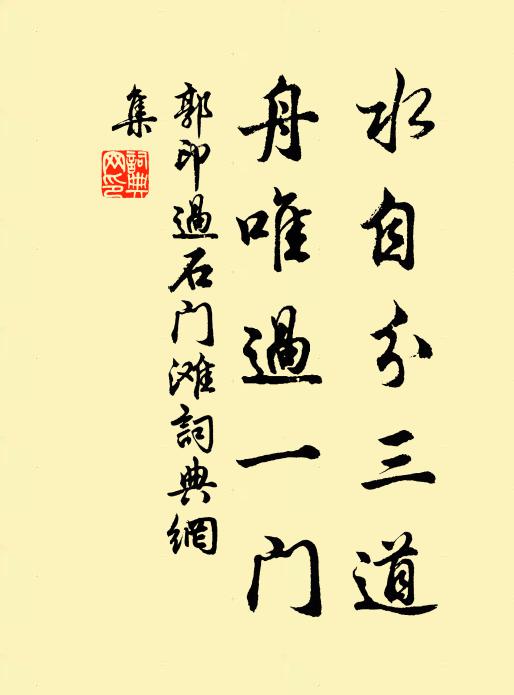 水自分三道
舟唯過一门
郭印過石门滩詞典網
集
詞典网印